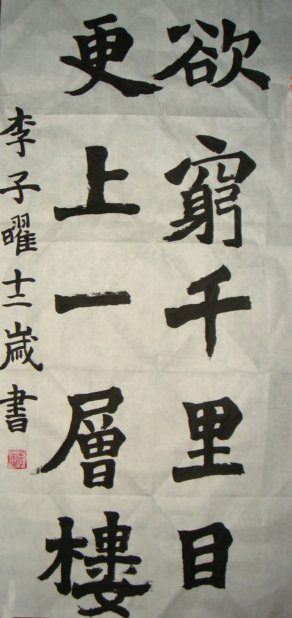 欲窮千里目
更上一層樓
李子曜十二歲書